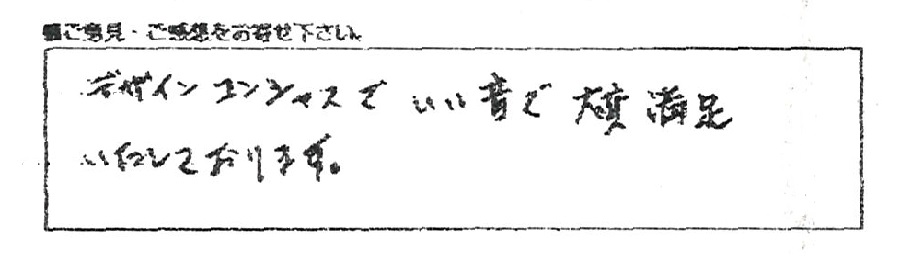 ■ご意見・ご感想をお寄せ下さい。
デザインエンシャスで いい音で 大変 満足
いたしております。